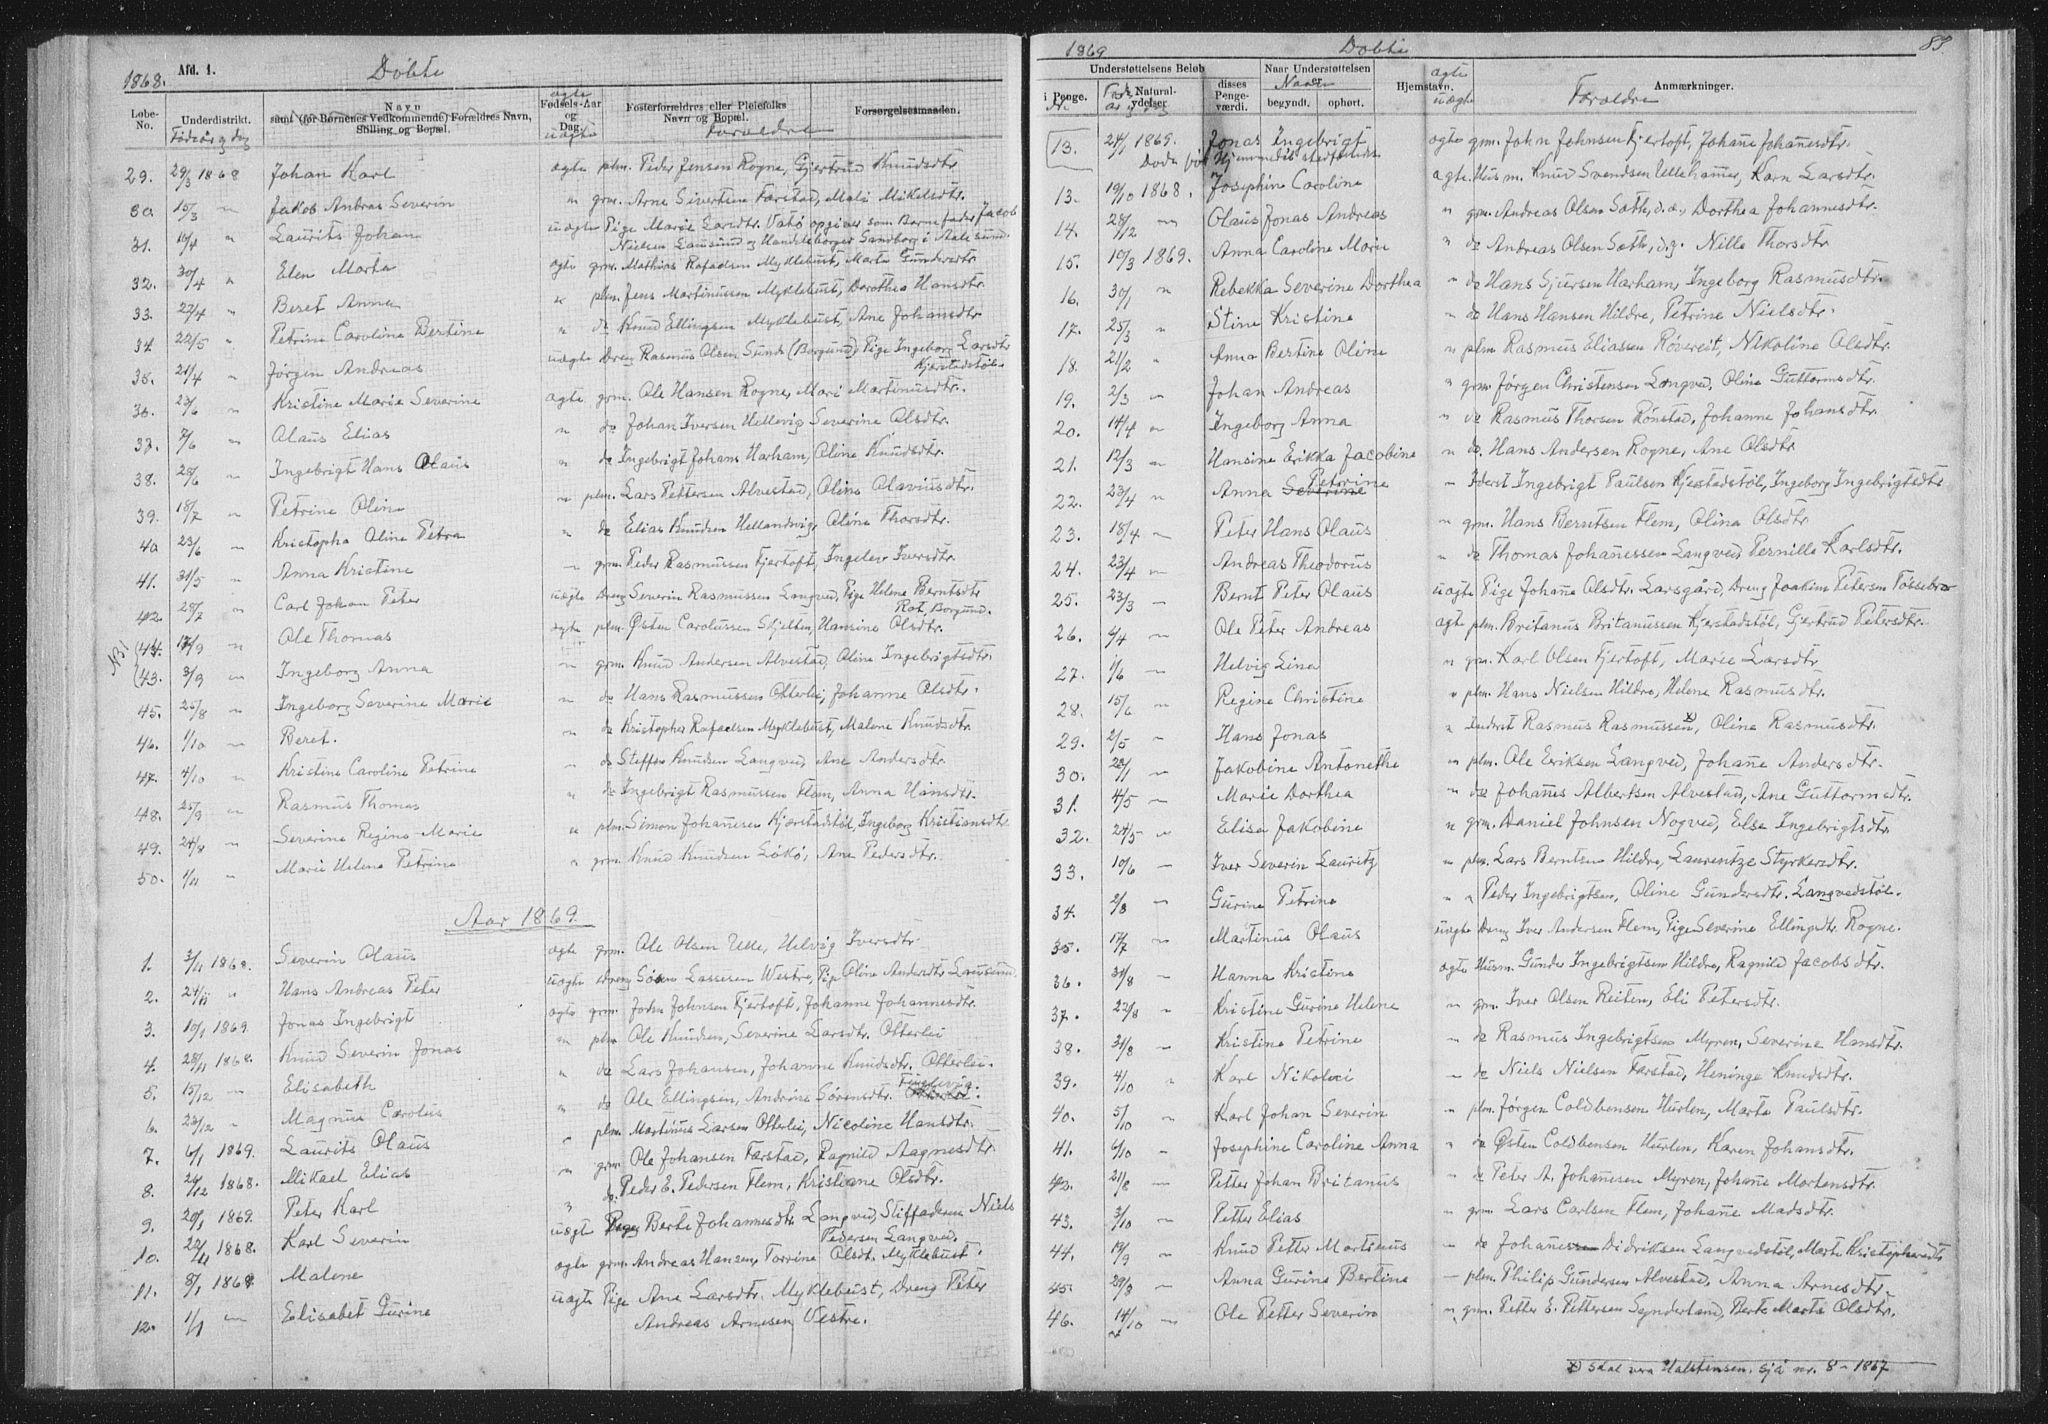 1868. Afd. 1. Døbte
Løbe-No. Underdistrikt. Navn samt (for Børnenes Vedkommende) Forældres Navn, Stilling og Bopæl. Fødsels-Aar og Dag. Fosterforældres eller Pleiefolks Navn og Bopæl. Forsorgelsesmaaden.
Fødeår og dag ægte uægte Forældre
29. 29/3 1868 Johan Karl ægte plm. Peder Jensen Rogne, Gjertrud Knudsdtr.
30. 15/3 " Jakob Andras Severin " grm. Arne Sivertsen Farstad, Mali Mikelsdtr.
31. 19/4 " Laurits Johan uægte Pige Marie Larsdtr. Vatø opgiver som Barnefader Jacob
Nielsen Lausund og Handelsborger Sandborg i Aalesund.
32. 30/4 " Elen Marta ægte grm. Mathias Rafaelsen Myklebust, Marta Gundersdtr.
33. 27/4 " Beret Anna " plm. Jens Martinussen Myklebust, Dorothea Hansdtr.
34. 22/5 " Petrine Caroline Bertine " do Knud Ellingsen Myklebust, Ane Johansdtr.
35. 21/4 " Jørgen Andreas uægte Dreng Rasmus Olsen Sunde (Borgund) Pige Ingeborg Larsdtr
Kjærstadstøl.
36. 23/6 " Kristine Marie Severine ægte grm. Ole Hansen Rogne, Mari Martinusdtr.
37. 7/6 " Olaus Elias " do Johan Iversen Hellevig Severine Olsdtr.
38. 28/6 " Ingebrigt Hans Olaus " do Ingebrigt Johans Harham, Oline Knudsdtr.
39. 18/7 " Petrine Oline " plm. Lars Pettersen Alvestad, Oline Olaviusdtr.
40 23/6 " Kristopha Oline Petra " do Elias Knudsen Hellandvig, Oline Thorsdtr.
41. 31/5 " Anna Kristine " grm. Peder Rasmussen Fjertoft, Ingelev Iversdtr.
42. 28/7 " Carl Johan Peter uægte Dreng Severin Rasmussen Langved, Pige Helene Berntsdtr
Rot, Borgund.
NB! (44. 17/9 " Ole Thomas ægte plm. Østen Carolussen Skjelten, Hansine Olsdtr.
(43. 3/9 " Ingeborg Anna " grm. Knud Andersen Alvestad, Oline Ingebrigtsdtr.
45. 25/8 " Ingeborg Severine Marie " do Hans Rasmussen Otterlei, Johanne Olsdtr.
46. 1/10 " Beret. " do Kristopher Rafaelsen Myklebust, Malene Knudsdtr.
47. 4/10 " Kristine Caroline Petrine " do Steffen Knudsen Langved, Ane Andersdtr.
48. 25/9 " Rasmus Thomas " do Ingebrigt Rasmussen Flem, Anna Hansdtr.
49. 24/8 " Severine Regine Marie " plm. Simon Johanesen Kjærstadstøl, Ingeborg Kristiansdtr
50. 1/11 " Marie Helene Petrine " grm. Knud Knudsen Løkø, Ane Pedersdtr.
Aar 1869.
1. 3/11 1868. Severin Olaus ægte grm. Ole Olsen Ulle, Helvig Iversdtr
2. 24/11 " Hans Andreas Peter uægte dreng Søren Lassesen Westre, Pige Oline Andersdtr Lausund.
3. 10/1 1869. Jonas Ingebrigt ægte grm. John Johnsen Fjertoft, Johanne Johannesdtr.
4. 28/11 1868. Knud Severin Jonas " plm Ole Knudsen, Severine Larsdtr. Otterlei
5. 15/12 " Elisabeth " do Lars Johansen, Johanne Knudsdtr. Otterlei.
6. 23/12 " Magnus Carolus " do Ole Ellingsen, Andrine Sørensdtr.
7. 6/1 1869. Laurits Olaus " plm. Martinus Larsen Otterlei, Nicoline Hansdtr.
8. 26/12 1868. Mikael Elias " grm. Ole Johansen Farstad, Ragnild Aagnesdtr.
9. 20/1 1869. Peter Karl " do. Peder E. Pedersen Flem, Kristiane Olsdtr.
10. 22/11 1868. Karl Severin uægte Pige Berte Johannesdtr. Langved, Stiffaderen Niels
Pedersen Langved.
11. 8/1 1869. Malene ægte grm. Andreas Hansen, Torrine Olsdt. Myklebust.
12. 1/1 " Elisabet Gurine uægte Pige Ane Larsdtr. Myklebust, Dreng Peter
Andreas Arnesen Vestre.
1869 Døbte 89.
Understøttelsens Beløb Naar Understøttelsen er Hjemstavn. Anmærkninger.
i Penge. Natural-ydelser disses Penge-værdi. begyndt. ophørt.
Nr. Navn ægte uægte Forældre
13. 24/1 1869. Jonas Ingebrigt ægte grm. John Johnsen Fjertoft, Johane Johanesdtr.
13. 19/10 1868. Josephine Caroline ægte Husm. Knud Svendsen Ullehamer, Karn Larsdtr.
14. 28/12 " Olaus Jonas Andreas " grm. Andreas Olsen Sæth, d.æ., Dorthea Johannesdtr.
15. 10/3 1869. Anna Caroline Marie " do Andreas Olsen Sæth, d.y. Nille Thorsdtr
16. 30/1 " Rebekka Severine Dorthea " do Hans Sjursen Harham, Ingeborg Rasmusdtr.
17. 25/3 " Stine Kristine " do Hans Hansen Hildre, Petrine Nielsdtr.
18. 21/2 " Anna Bertine Oline " plm Rasmus Eliassen Røvereit, Nikoline Olsdtr.
19. 2/3 " Johan Andreas " grm. Jørgen Christensen Longved, Oline Guttormsdtr.
20. 14/4 " Ingeborg Anna " do Rasmus Thorsen Rønstad, Johanne Johansdtr.
21. 12/3 " Hansine Erikka Jacobine " do. Hans Andersen Rogne, Ane Olsdtr.
22. 23/4 " Anna Severine Petrine " Inderst Ingebrigt Paulsen Kjerstadstøl, Ingeborg Ingebrigtsdtr
23. 18/4 " Peter Hans Olaus " grm. Hans Berntsen Flem, Olina Olsdtr
24. 23/4 " Andreas Theodorus " do Thomas Johanessen Langved Pernille Karlsdtr.
25. 23/3 " Bernt Peter Olaus uægte Pige Johane Olsdtr. Larsgård, Dreng Joakim Petersen Fossebro
26. 4/4 " Ole Peter Andreas ægte plm. Britanus Britanussen Kjerstadstøl, Gjertrud Petersdtr.
27. 1/6 " Helvig Lina " grm. Karl Olsen Fjertoft, Marie Larsdtr
28. 15/6 " Regine Christine " plm. Hans Nielsen Hildre, Helene Rasmusdtr.
29. 2/5 " Hans Jonas " Inderst Rasmus Rasmussen x), Oline Rasmusdtr.
30. 28/1 " Jakobine Antonethe " plm. Ole Eriksen Langved, Johane Andersdtr.
31. 4/5 " Marie Dorthea " do Johanes Albertsen Alvestad, Ane Guttormsdtr.
32. 24/5 " Elisa Jakobine " grm. Daniel Johnsen Nogved, Else Ingebrigtsdtr.
33. 10/6 " Iver Severin Lauritz " plm. Lars Berntsen Hildre, Laurentze Styrkersdtr.
34. 2/8 " Gurine Petrine " " Peder Ingebrigtsen, Oline Gundersdtr. Langvedstøl.
35. 17/7 " Martinus Olaus uægte Dreng Iver Andersen Flem, Pige Severine Ellingsdtr. Rogne.
36. 31/8 " Hanna Kristine ægte Husm. Gunder Ingebrigtsen Hildre, Ragnild Jacobsdtr.
37. 22/8 " Kristine Gurine Helene " grm. Iver Olsen Reiten, Eli Petersdtr.
38. 31/8 " Kristine Petrine " do Rasmus Ingebrigtsen Myren, Severine Hansdtr.
39. 4/10 " Karl Nikolai " do Niels Nielsen Farstad, Heninge Knudsdtr.
40. 5/10 " Karl Johan Severin " plm. Jørgen Coldbensen Hurlen, Marte Paulsdtr.
41. 4/10 " Josephine Caroline Anna " do Østen Coldbensen Hurlen, Karen Johansdtr.
42. 21/8 " Petter Johan Britanus " do Peter A. Johanesen Myren, Johane Mortensdtr.
43. 3/10 " Petter Elias " grm. Lars Carlsen Flem, Johane Madsdtr.
44. 19/9 " Knud Petter Martinus " do Johanes Didriksen Langvedstøl, Marte Kristophersdtr
45. 29/8 " Anna Gurine Bertine " plm. Philip Gundersen Alvestad, Anna Arnesdtr.
46. 14/10 " Ole Petter Severin " grm. Petter E. Pettersen Synderland, Berte Marta Olsdtr.
x) Skal vera Halstensen. sjå nr. 8 - 1867